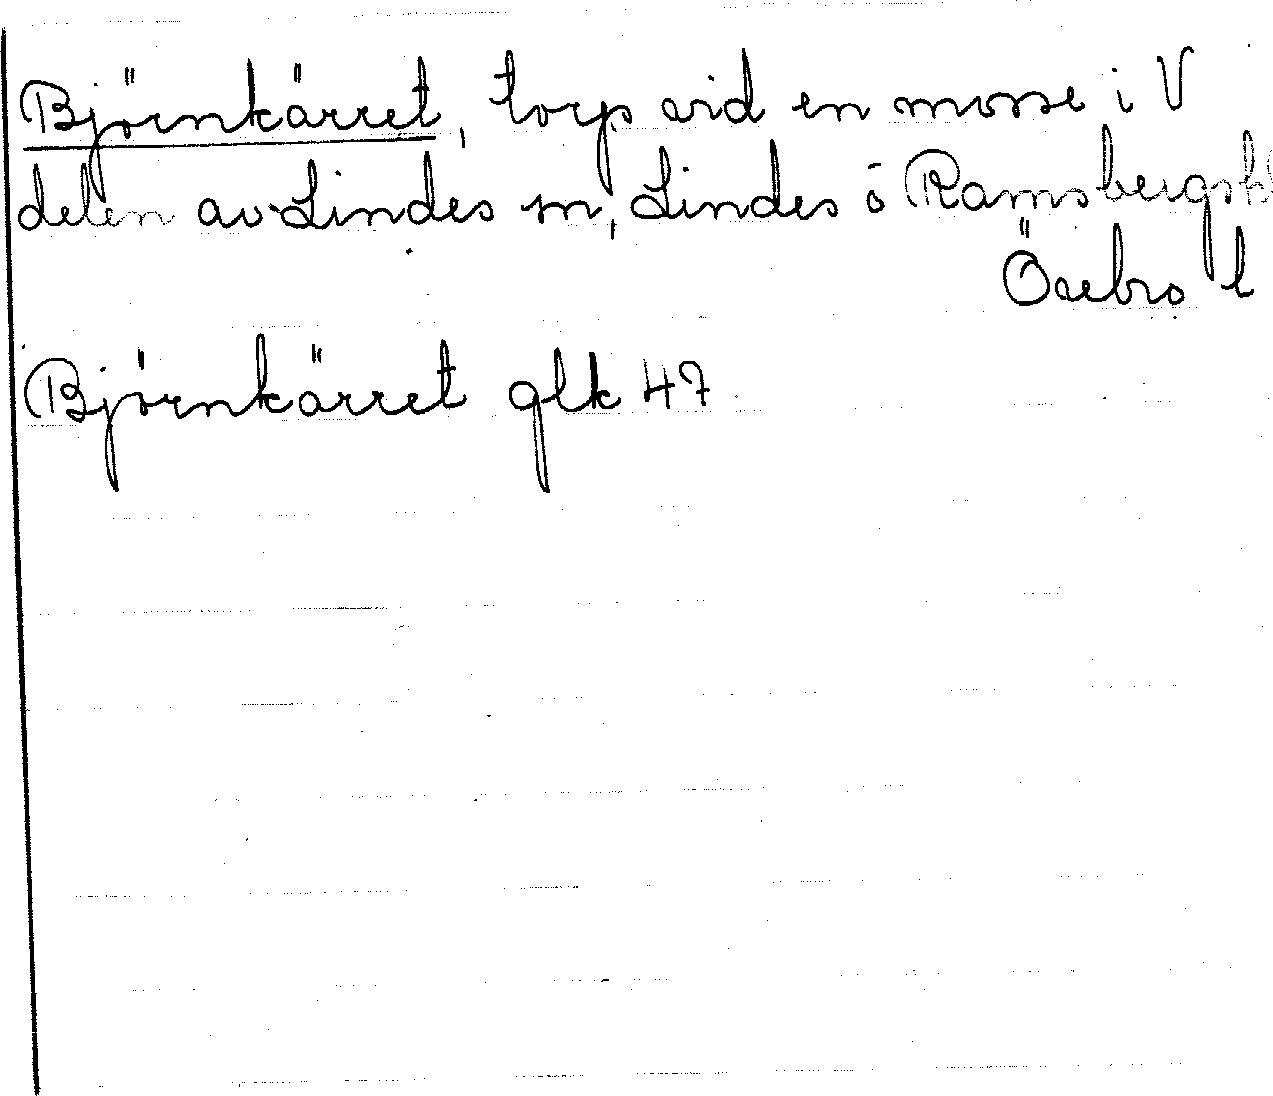 Björnkärret, torp vid en mosse i V
delen av Lindes sn, Lindes o Ramsbergs h
Örebro l
Björnkärret glk 47